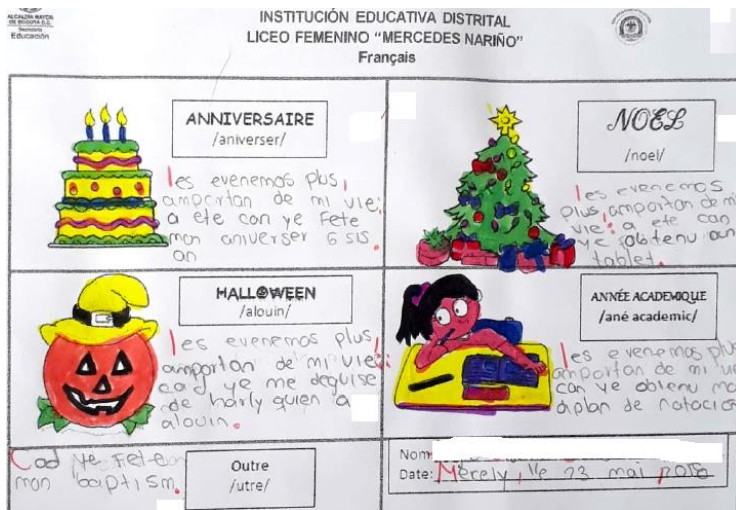 ALCALDÍA MAYOR
DE BOGOTÁ D.C.
Secretaría
Educación
INSTITUCIÓN EDUCATIVA DISTRITAL
LICEO FEMENINO “MERCEDES NARIÑO”
Français
ANNIVERSAIRE
/aniverser/
les evenemos plus,
amportan de mi vie:
a ete can ye Fete
mon aniverser 6 sis
an
NOEL
/noel/
les evenemos
plus, amportan de mi
vie: a ete can
ye obtenu an
tablet.
HALLOWEEN
/alouin/
les evenemos plus,
amportan de mi vie:
cad ye me deguise
de harly quien a
alouin.
ANNÉE ACADEMIQUE
/ané academic/
les evenemos plu
amportan de mi vi
can ye obtenu mo
diplan de natacion
Cad ye Fete
mon baptism.
Outre
/utre/
Nom:
Date: Mercly, lle 23 mai, 2018